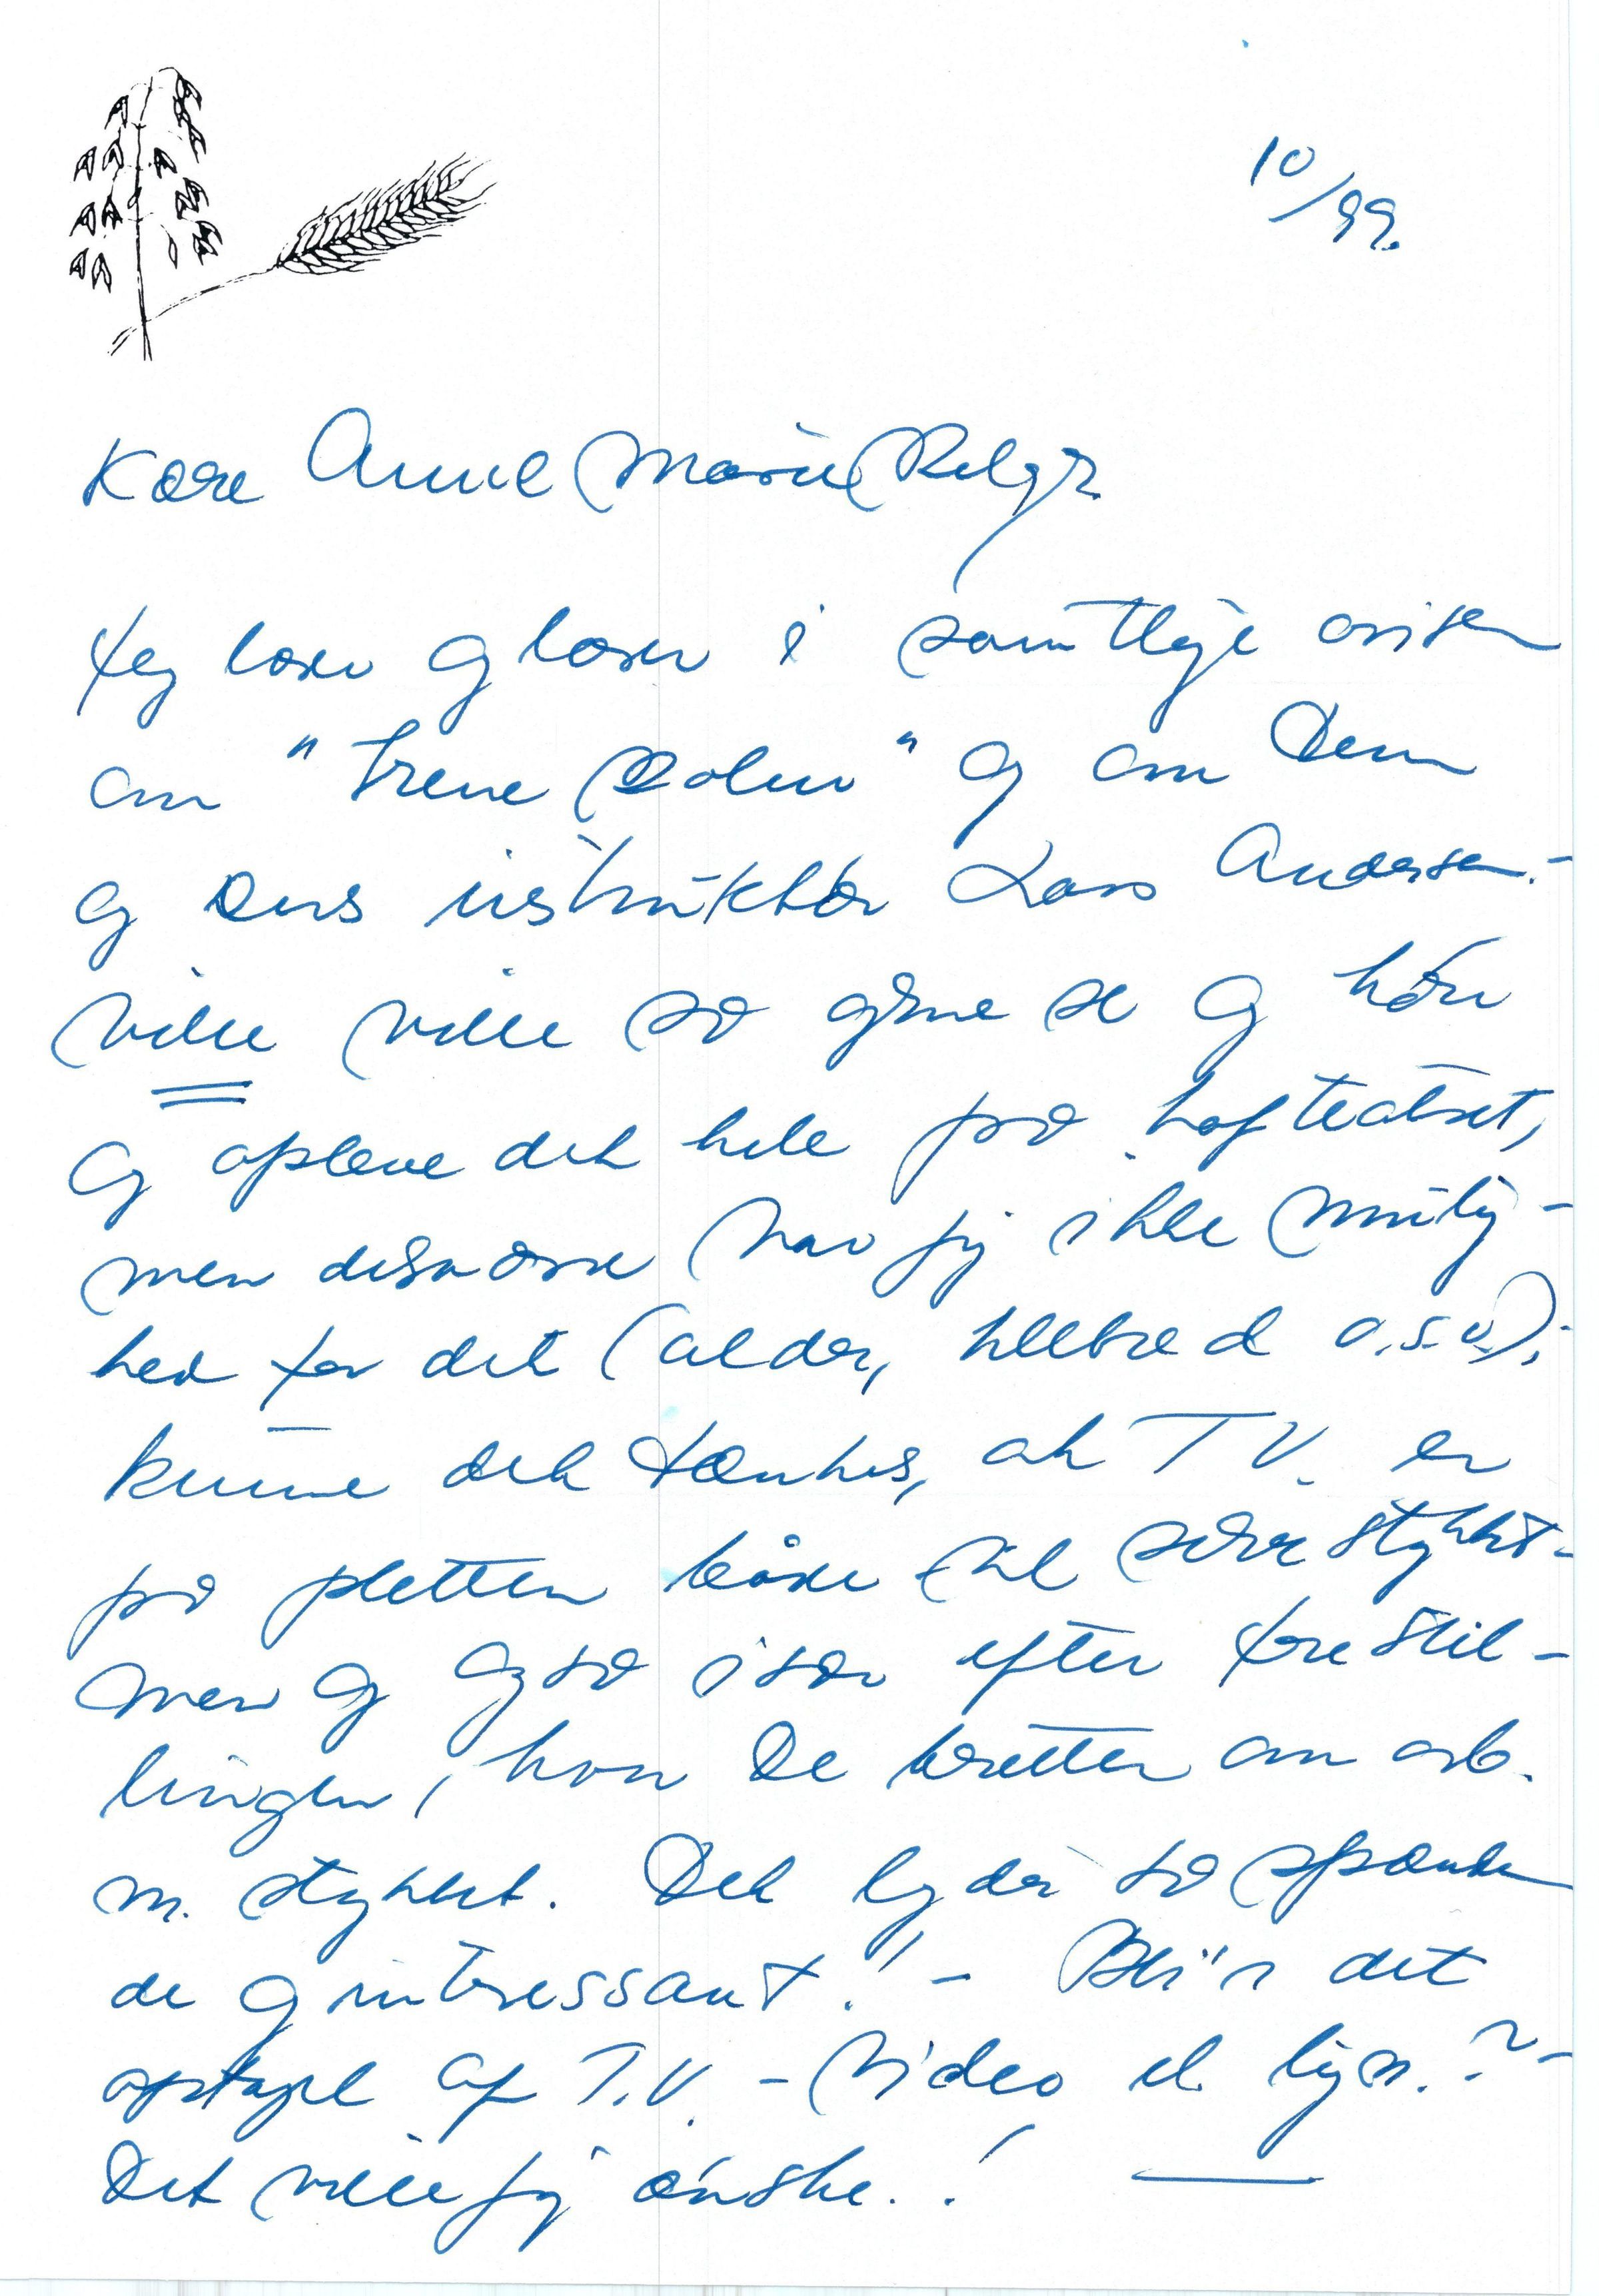 10/99.
Kære Anne Marie Helge.
Jeg læser og læser i samtlige aviser
om "Irene Holm" og om Dem
og Deres instruktør Lars Andersen. -
ville ville så gerne se og høre
og opleve det hele på hofteatret,
men desværre har jeg ikke mulig-
hed for det (alder, helbred o.s.v.);
kunne det tænkes, at T.V. er
på pletten både til selve stykket -
men og også især efter forestil-
lingen, hvor De beretter om arb.
m. stykket. Det lyder så spænden
de og intressant! - Bli'r det
optaget af T.V. - Video el. lign.? -
Det ville jeg ønske.!